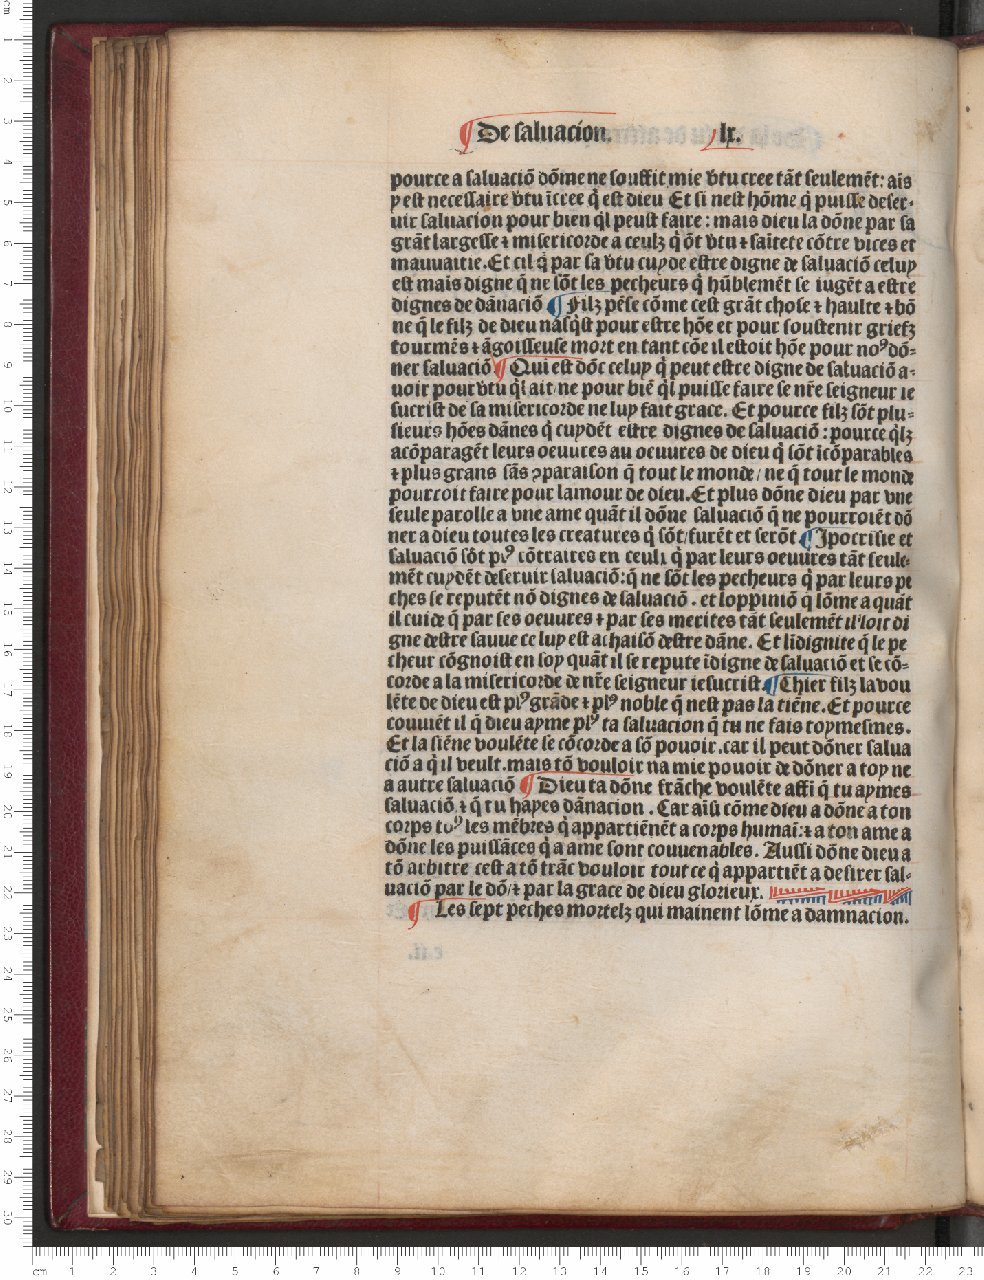 ¶ De saluacion. lx.
pource a saluaciõ dõme ne souffit mie vtu cree tãt seulemẽt: aĩs
y est necessaire vtu ĩcree q̃ est dieu Et si nest hõme q̃ puisse deser-
uir saluacion pour bien ql peust faire: mais dieu la dõne par sa
grãt largesse ⁊ misericorde a ceulz q̃ õt vtu ⁊ saĩtete cõtre vices et
mauuaitie. Et cil q̃ par sa vtu cuyde estre digne de saluaciõ celuy
est mais digne q̃ ne sõt les pecheurs q̃ hũblemẽt se iugẽt a estre
dignes de dãnaciõ ¶ Filz pẽse cõme cest grãt chose ⁊ haulte ⁊ bõ
ne q̃ le filz de dieu nasq̃st pour estre hõe et pour soustenir griefz
tourmẽs ⁊ ãgoisseuse mort en tant cõe il estoit hõe pour noꝰ dõ-
ner saluaciõ ¶ Qui est dõc celuy q̃ peut estre digne de saluaciõ a-
uoir pour vtu ql ait ne pour biẽ ql puisse faire se nr̃e seigneur ie
sucrist de sa misericorde ne luy fait grace. Et pource filz sõt plu-
sieurs hões dãnes q̃ cuydẽt estre dignes de saluaciõ: pource qlz
acõparagẽt leurs oeuures au oeuures de dieu q̃ sõt ĩcõparables
⁊ plus grans sãs ꝯparaison q̃ tout le monde/ ne q̃ tout le monde
pourroit faire pour lamour de dieu. Et plus dõne dieu par vne
seule parolle a vne ame quãt il dõne saluaciõ q̃ ne pourroiẽt dõ
ner a dieu toutes les creatures q̃ sõt/ furẽt et serõt ¶ Ipocrisie et
saluaciõ sõt plꝰ cõtraires en ceulx q̃ par leurs oeuures tãt seule-
mẽt cuydẽt deseruir saluaciõ: q̃ ne sõt les pecheurs q̃ par leurs pe
ches se reputẽt nõ dignes de saluaciõ. et loppiniõ q̃ lõme a quãt
il cuide q̃ par ses oeuures ⁊ par ses merites tãt seulemẽt il soit di
gne destre sauue ce luy est achaisõ destre dãne. Et lĩdignite q̃ le pe
cheur cõgnoist en soy quãt il se repute ĩdigne de saluaciõ et se cõ-
corde a la misericorde de nr̃e seigneur iesucrist ¶ Chier filz la vou
lẽte de dieu est plꝰ grãde ⁊ plꝰ noble q̃ nest pas la tiẽne. Et pource
couuiẽt il q̃ dieu ayme plꝰ ta saluacion q̃ tu ne fais toymesmes.
Et la siẽne voulẽte se cõcorde a sõ pouoir. car il peut dõner salua
ciõ a q̃ il veult. mais tõ vouloir na mie pouoir de dõner a toy ne
a autre saluaciõ ¶ Dieu ta dõne frãche voulẽte affi q̃ tu aymes
saluaciõ. ⁊ q̃ tu hayes dãnacion. Car aĩsi cõme dieu a dõne a ton
corps toꝰ les mẽbres q̃ appartiẽnẽt a corps humaĩ: ⁊ a ton ame a
dõne les puissãces q̃ a ame sont couuenables. Aussi dõne dieu a
tõ arbitre cest a tõ frãc vouloir tout ce q̃ appartiẽt a desirer sal-
uaciõ par le dõ/ ⁊ par la grace de dieu glorieux.
¶ Les sept peches mortelz qui mainent lõme a damnacion.